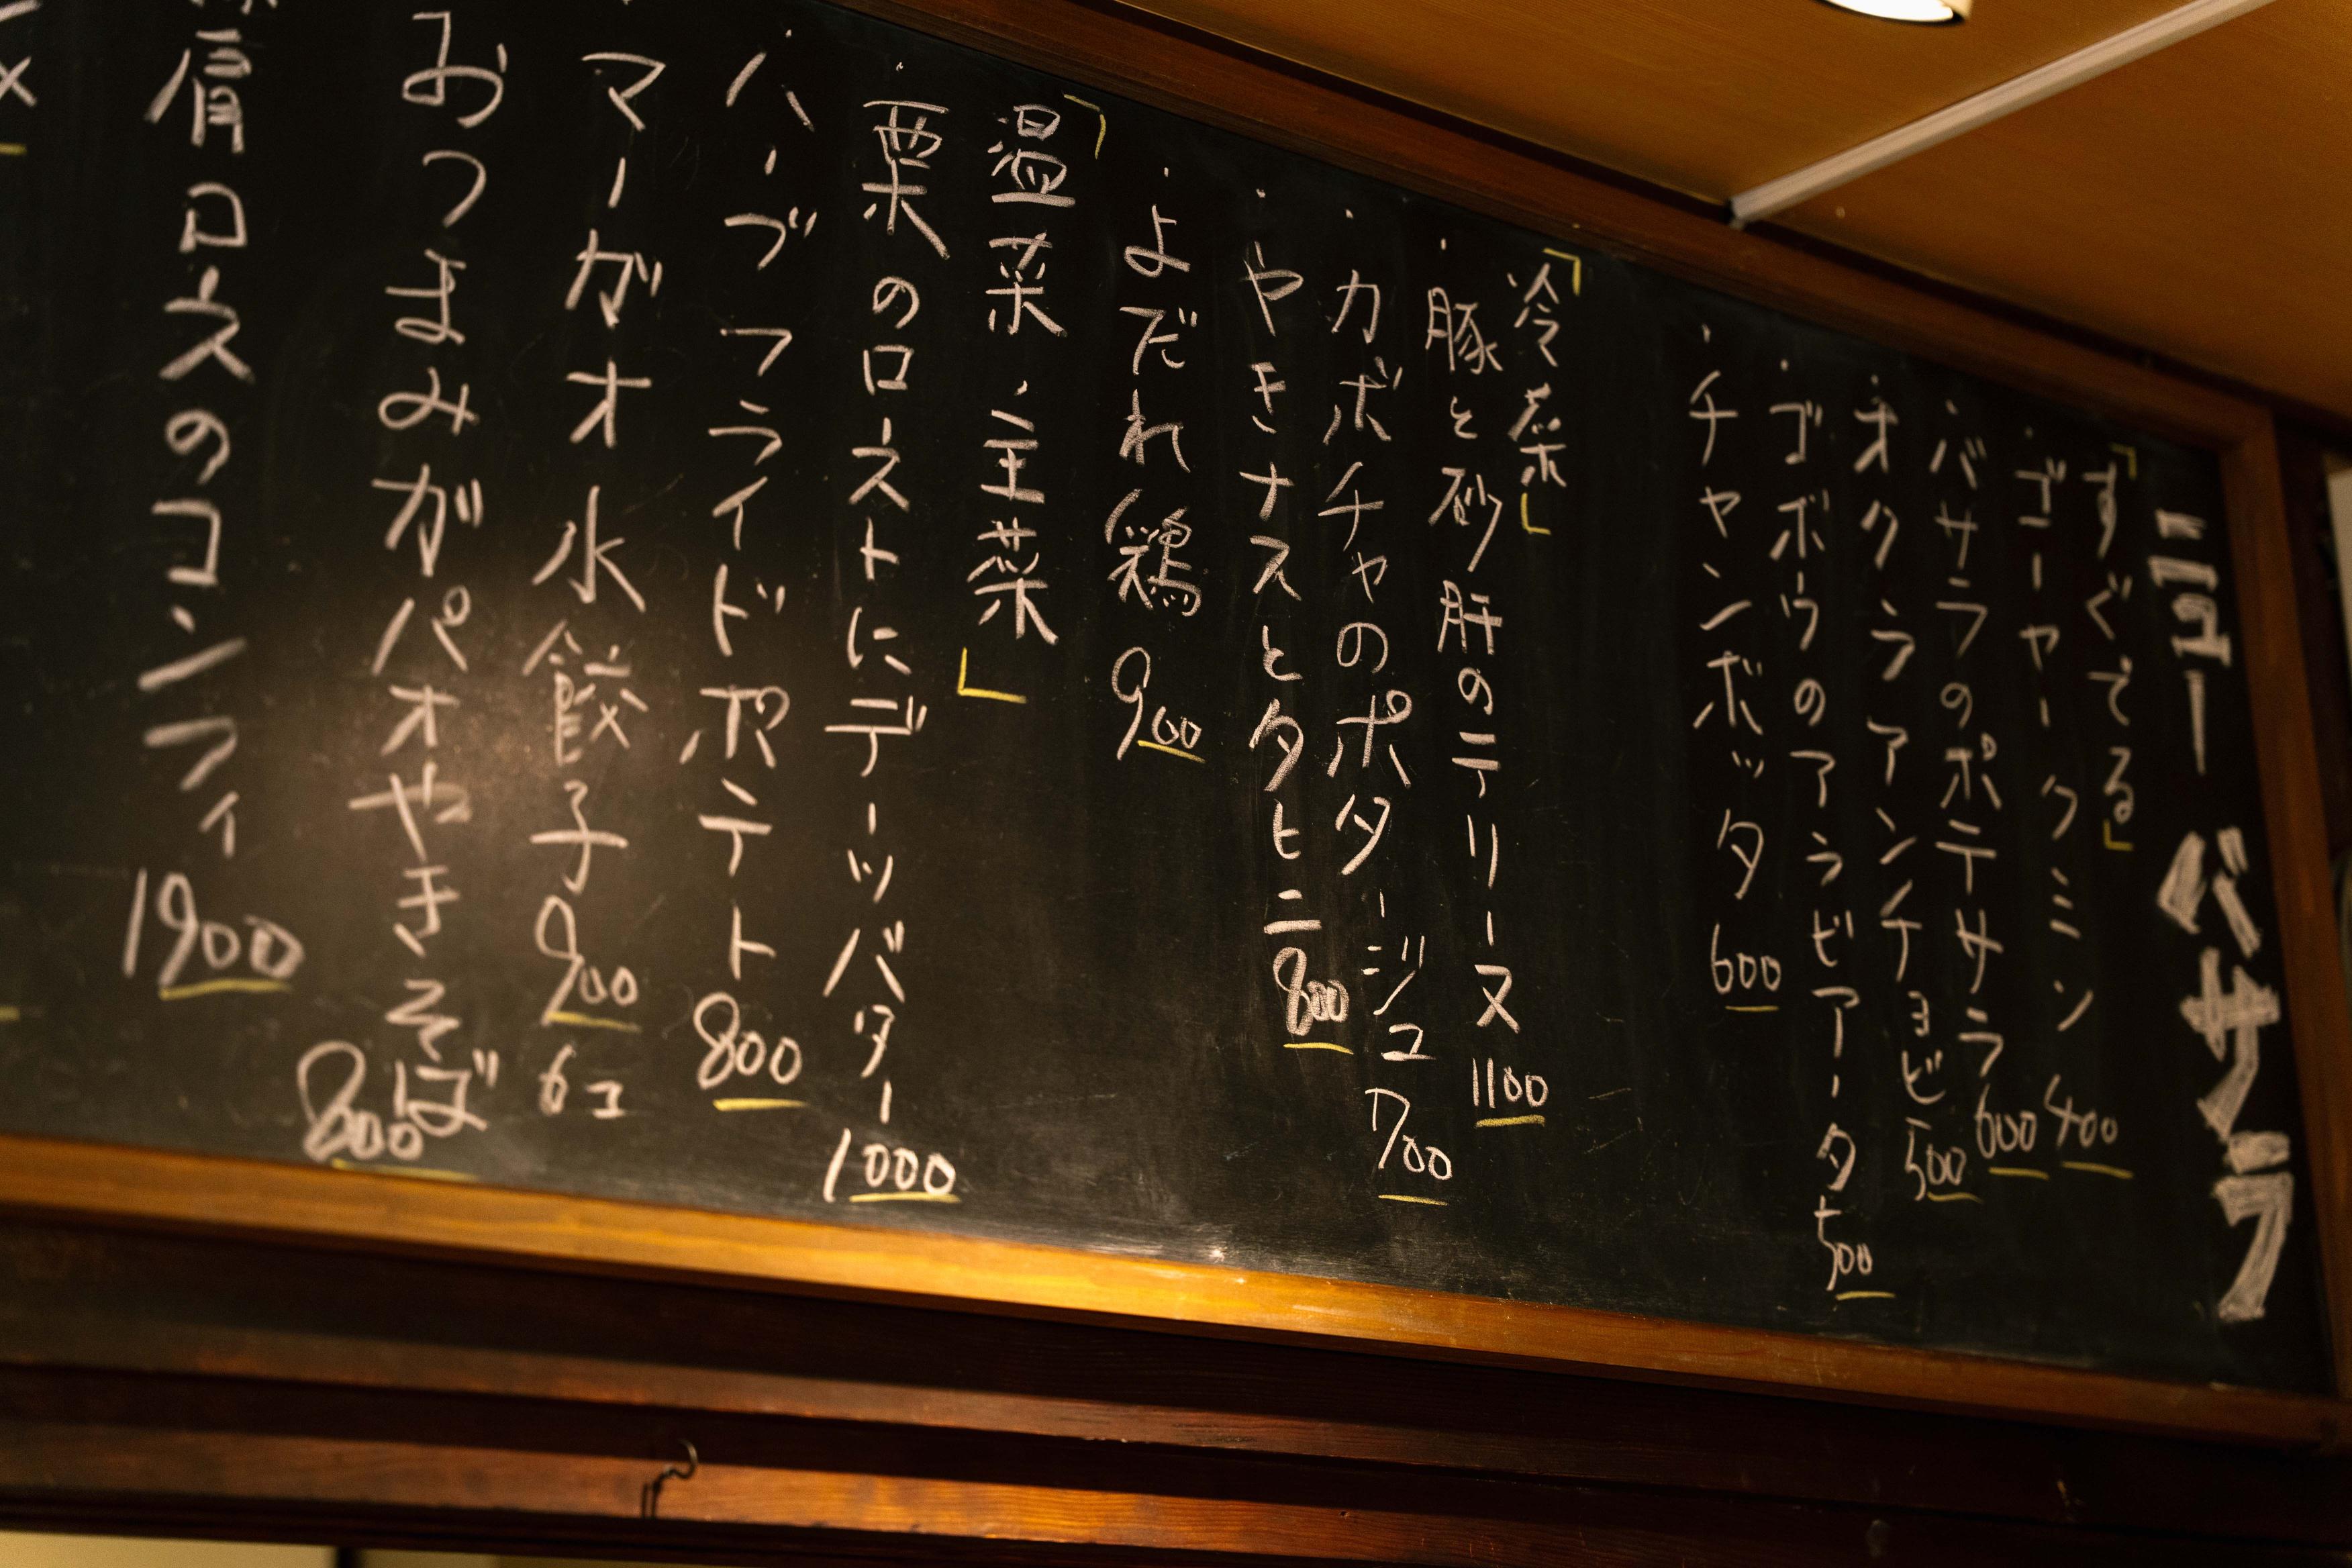 ニューバサラ
「すぐでる」
・ゴーヤークミン 400
・バサラのポテサラ 600
・オクラアンチョビ 500
・ゴボウのアラビアータ 500
・チャンボッタ 600
「冷菜」
・豚と砂肝のテリーヌ 1100
・カボチャのポタージュ 700
・やきナスとタヒニ 800
・よだれ鶏 900
「温菜・主菜」
・栗のローストにデーツバター 1000
・ハーブフライドポテト 800
マーガオ水餃子 900 6コ
おつまみガパオやきそば 800
肩ロースのコンフィ 1900